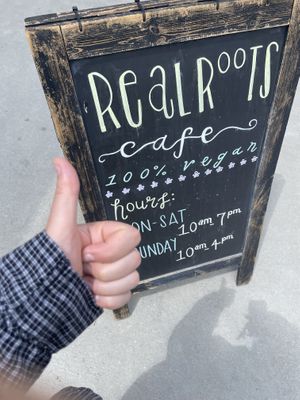 RealRooTS
cafe
100% vegan
hours:
ON-SAT 10am 7pm
UNDAY 10am 4pm